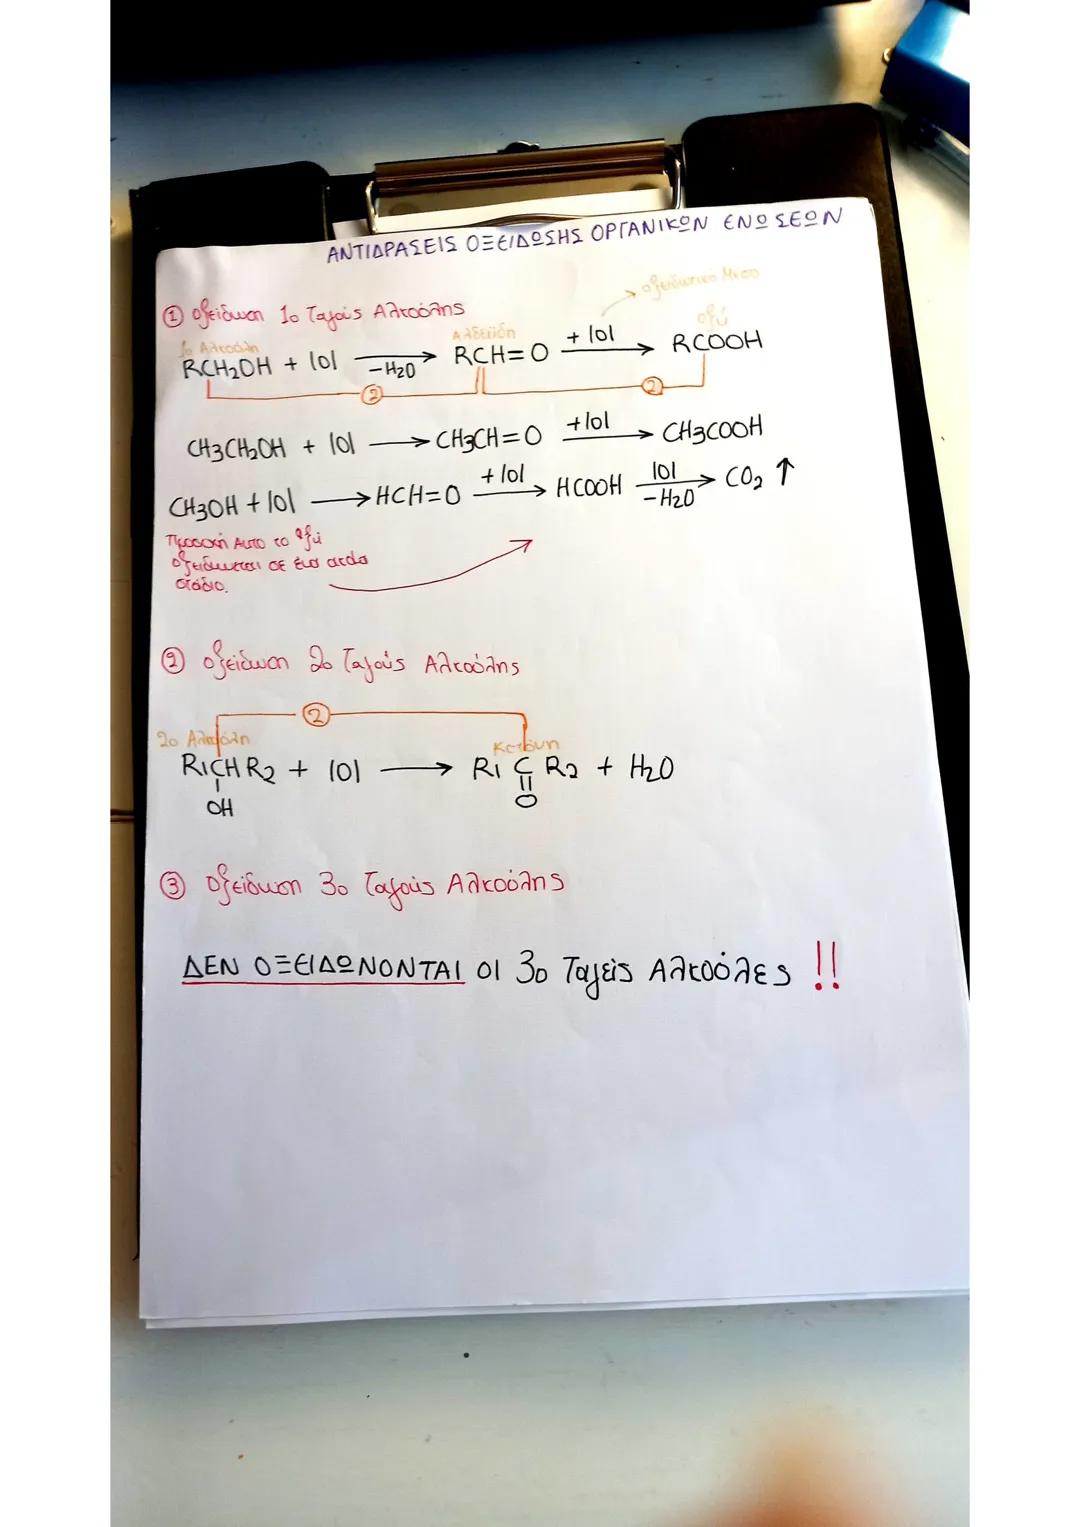 ΑΝΤΙΔΡΑΣΕΙΣ ΟΞΕΙΔΩΣΗΣ ΟΡΓΑΝΙΚΩΝ ΕΝΩΣΕΩΝ
οξειδωτικό Μεσο
① οξείδωση 1ο Ταγούς Αλκοόλης
1ο Αλκοόλη Αλδεΰδη οξύ
RCH2OH + |O| —−H2O→ RCH=O —+|O|→ RCOOH
② ②
CH3CH2OH + |O| → CH3CH=O —+|O|→ CH3COOH
CH3OH + |O| → HCH=O —+|O|→ HCOOH —|O| −H2O→ CO2 ↑
Προσοχή Αυτο το οξύ
οξειδώνεται σε ένα ακόμα
στάδιο.
② οξείδωση 2ο Ταγούς Αλκοόλης
②
2ο Αλκοόλη Κετόνη
R1CHR2 + |O| → R1 C R2 + H2O
OH O
③ Οξείδωση 3ο Ταγούς Αλκοόλης
ΔΕΝ ΟΞΕΙΔΩΝΟΝΤΑΙ ΟΙ 3ο Ταγείς Αλκοόλες !!